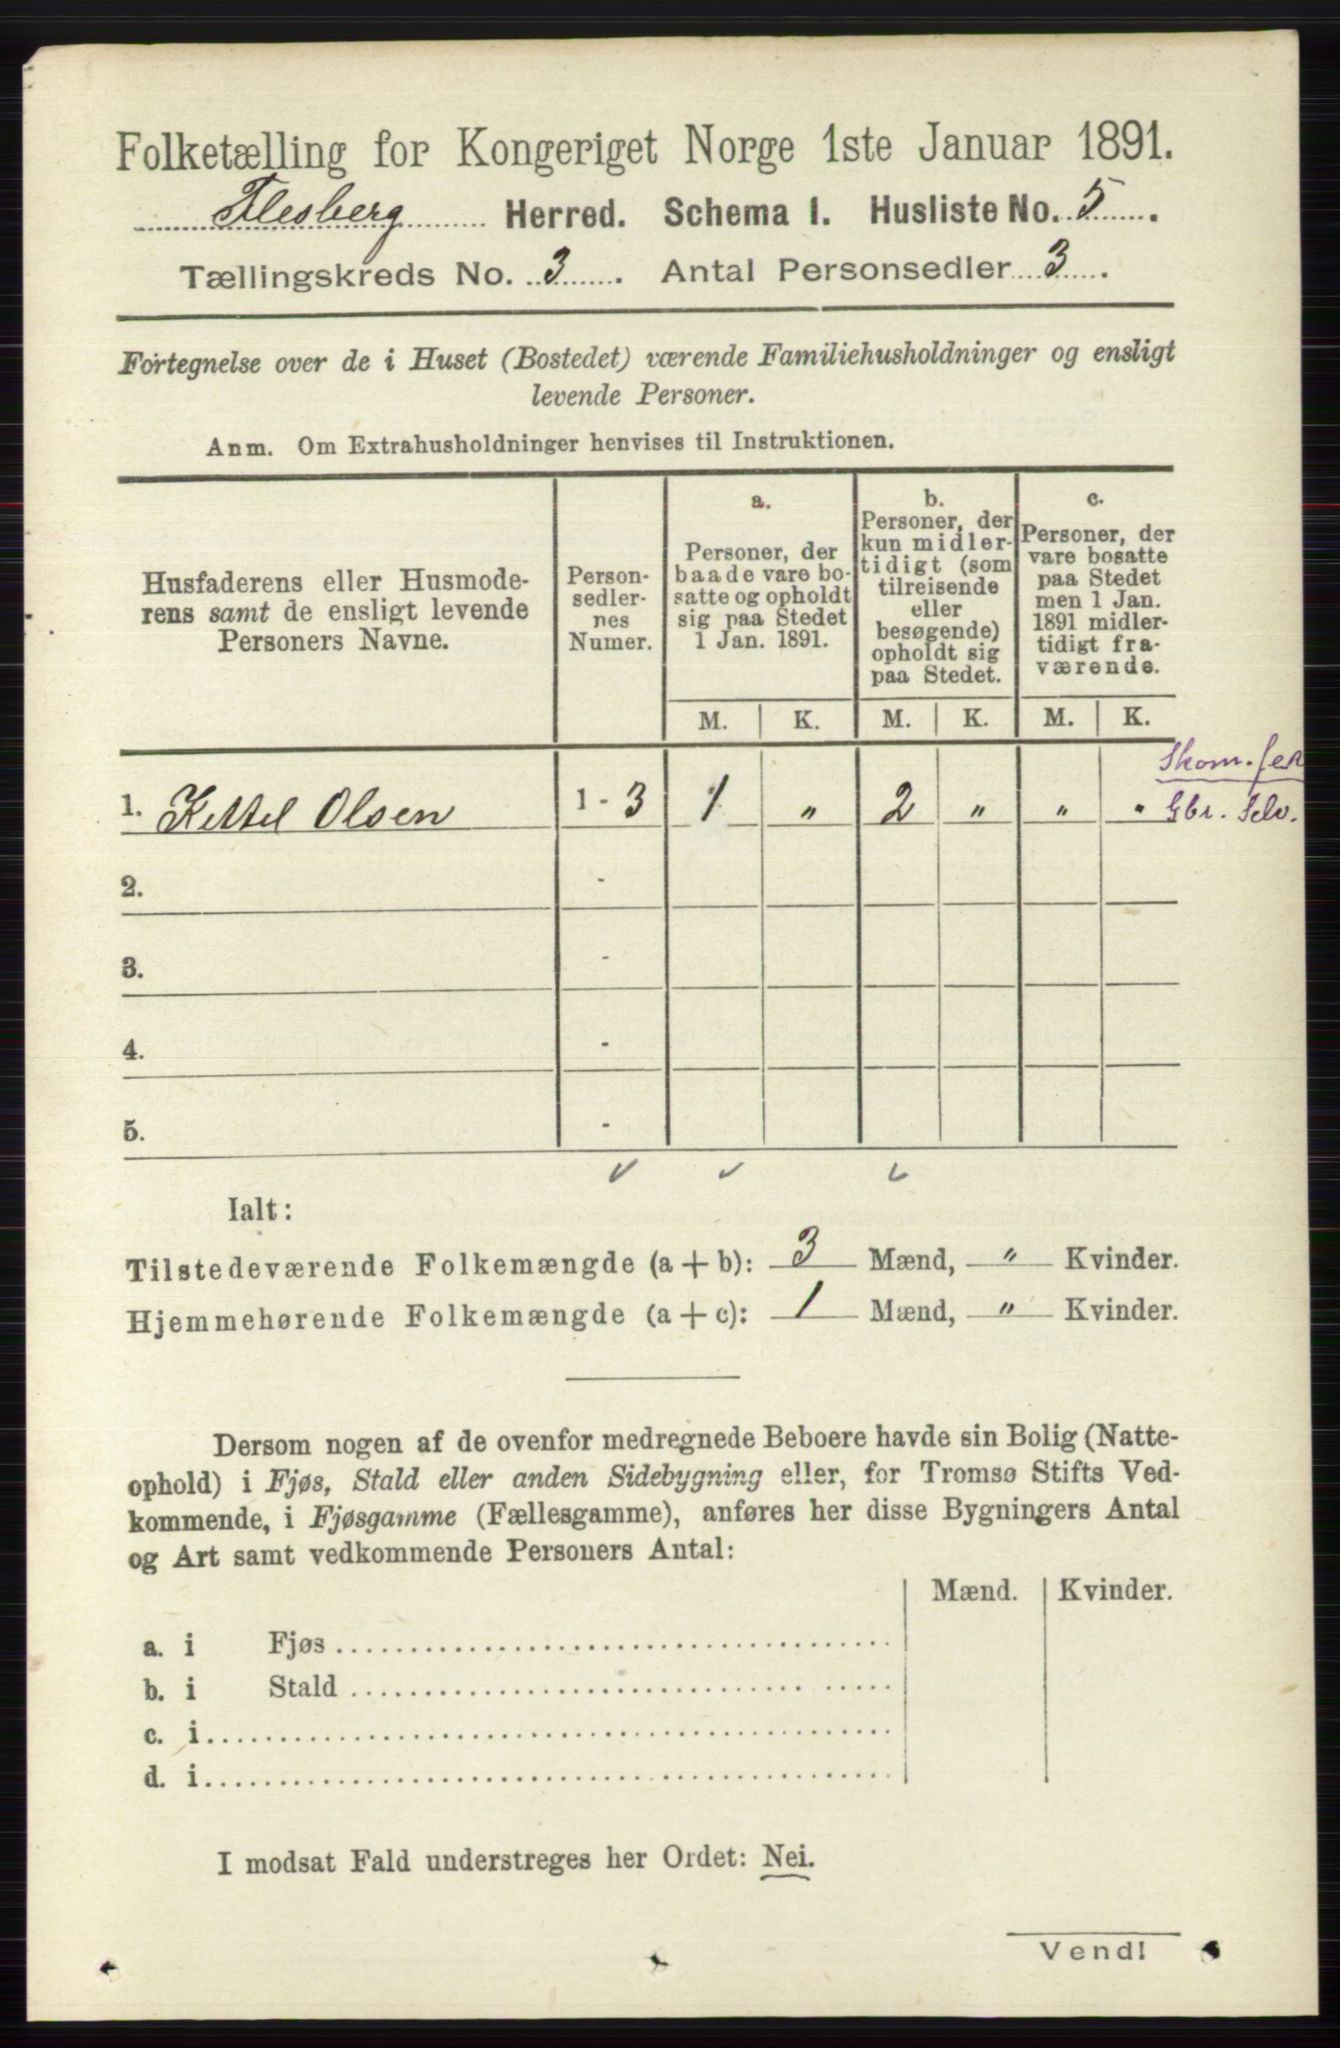 Folketælling for Kongeriget Norge 1ste Januar 1891.
Flesberg Herred. Schema I. Husliste No. 5.
Tællingskreds No. 3. Antal Personsedler 3.
Fortegnelse over de i Huset (Bostedet) værende Familiehusholdninger og ensligt
levende Personer.
Anm. Om Extrahusholdninger henvises til Instruktionen.
Husfaderens eller Husmode-
rens samt de ensligt levende
Personers Navne.
Person-
sedler-
nes
Numer.
a.
Personer, der
baade vare bo-
satte og opholdt
sig paa Stedet
1 Jan. 1891.
b.
Personer, der
kun midler-
tidigt (som
tilreisende
eller
besøgende)
opholdt sig
paa Stedet.
c.
Personer, der
vare bosatte
paa Stedet
men 1 Jan.
1891 midler-
tidigt fra-
værende.
M. K. M. K. M. K.
Skom.
1. Kittel Olsen 1 - 3 1 " 2 " " " Gbr. Selv.
2. -
3. -
4. -
5. -
Ialt:
Tilstedeværende Folkemængde (a + b): 3 Mænd, " Kvinder.
Hjemmehørende Folkemængde (a + c): 1 Mænd, " Kvinder.
Dersom nogen af de ovenfor medregnede Beboere havde sin Bolig (Natte-
ophold) i Fjøs, Stald eller anden Sidebygning eller, for Tromsø Stifts Ved-
kommende, i Fjøsgamme (Fællesgamme), anføres her disse Bygningers Antal
og Art samt vedkommende Personers Antal:
Mænd. Kvinder.
a. i Fjøs
b. i Stald
c. i
d. i
I modsat Fald understreges her Ordet: Nei.
Vend!